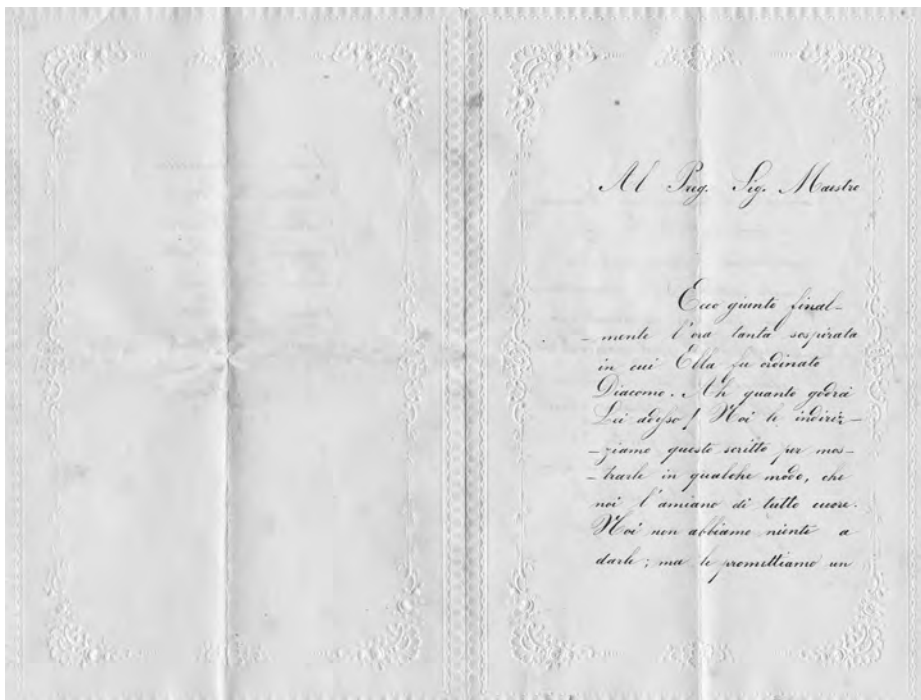 Al Preg. Sig. Maestro
Ecco giunta final-
-mente l'ora tanta sospirata
in cui Ella fu ordinato
Diacono. Ah quanto godrai
Lei adesso! Noi le indiriz-
-ziamo questo scritto per mos-
-trarle in qualche modo, che
noi l'amiamo di tutto cuore.
Noi non abbiamo niente a
darle; ma le promettiamo un